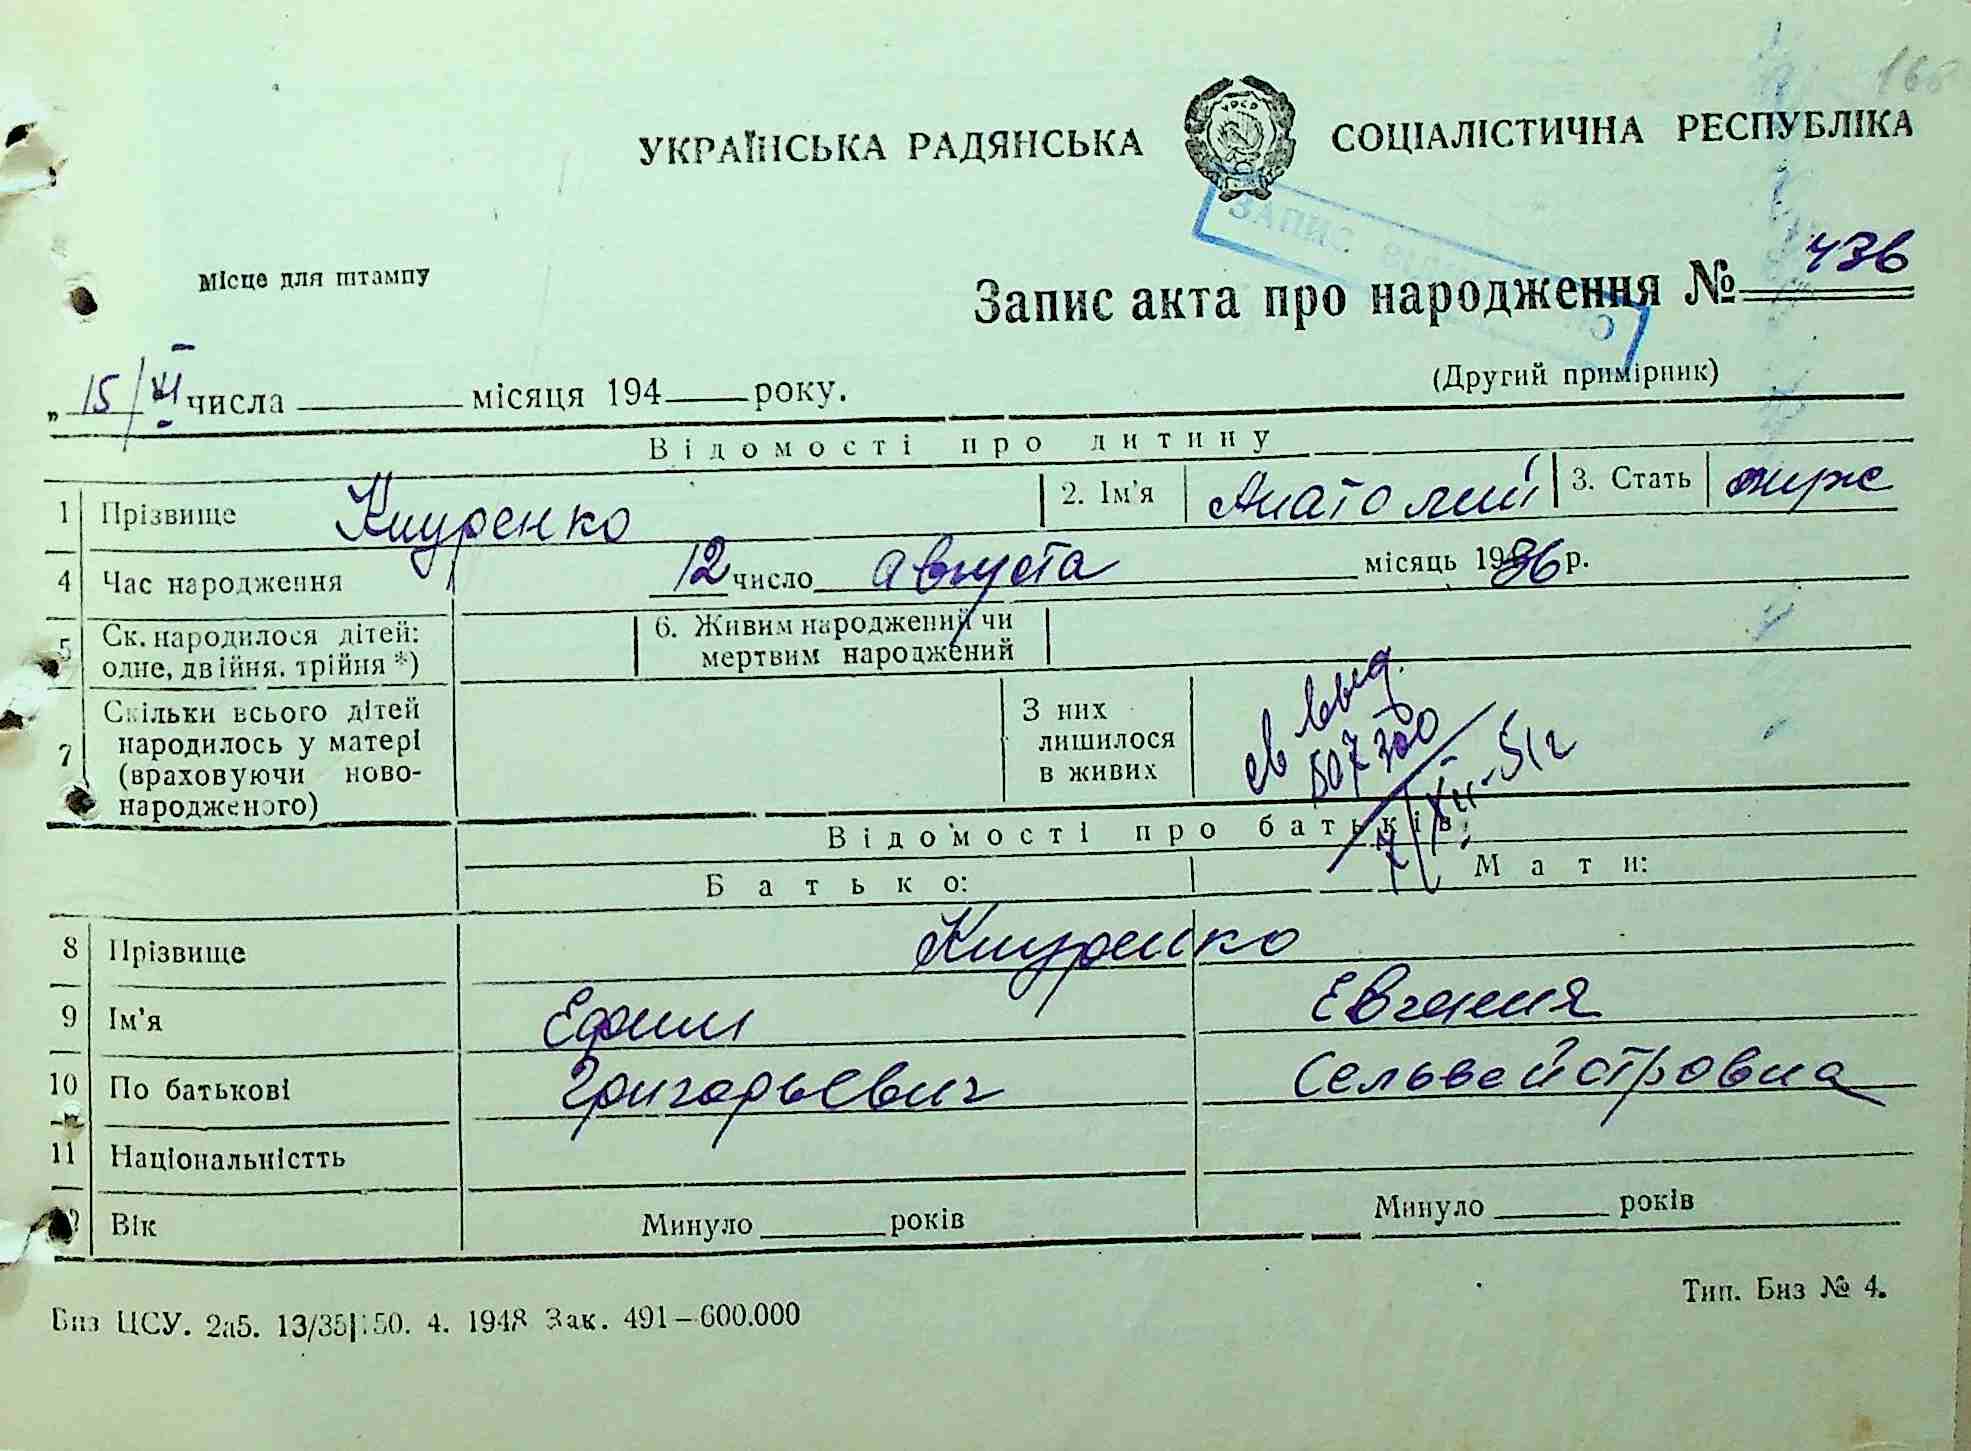 168
УКРАЇНСЬКА РАДЯНСЬКА СОЦІАЛІСТИЧНА РЕСПУБЛІКА
УРСР
ЗАПИС
Місце для штампу
Запис акта про народження № 436
(Другий примірник)
„ 15/VI числа місяця 194 року.
Відомості про дитину
1 Прізвище Кнуренко 2. Ім'я Анатолий 3. Стать муж
4 Час народження 12 число августа місяць 1936 р.
5 Ск. народилося дітей: одне, двійня, трійня *) 6. Живим народжений чи мертвим народжений
7 Скільки всього дітей народилось у матері (враховуючи новонародженого) З них лишилося в живих
св выд.
507300
7/XII-51г
Відомості про батьків:
Батько: Мати:
8 Прізвище Кнуренко
9 Ім'я Ефим Евгения
10 По батькові Григорьевич Сельвейстровна
11 Національністть
12 Вік Минуло років Минуло років
Биз ЦСУ. 2а5. 13/35|150. 4. 1948 Зак. 491–600.000
Тип. Биз № 4.